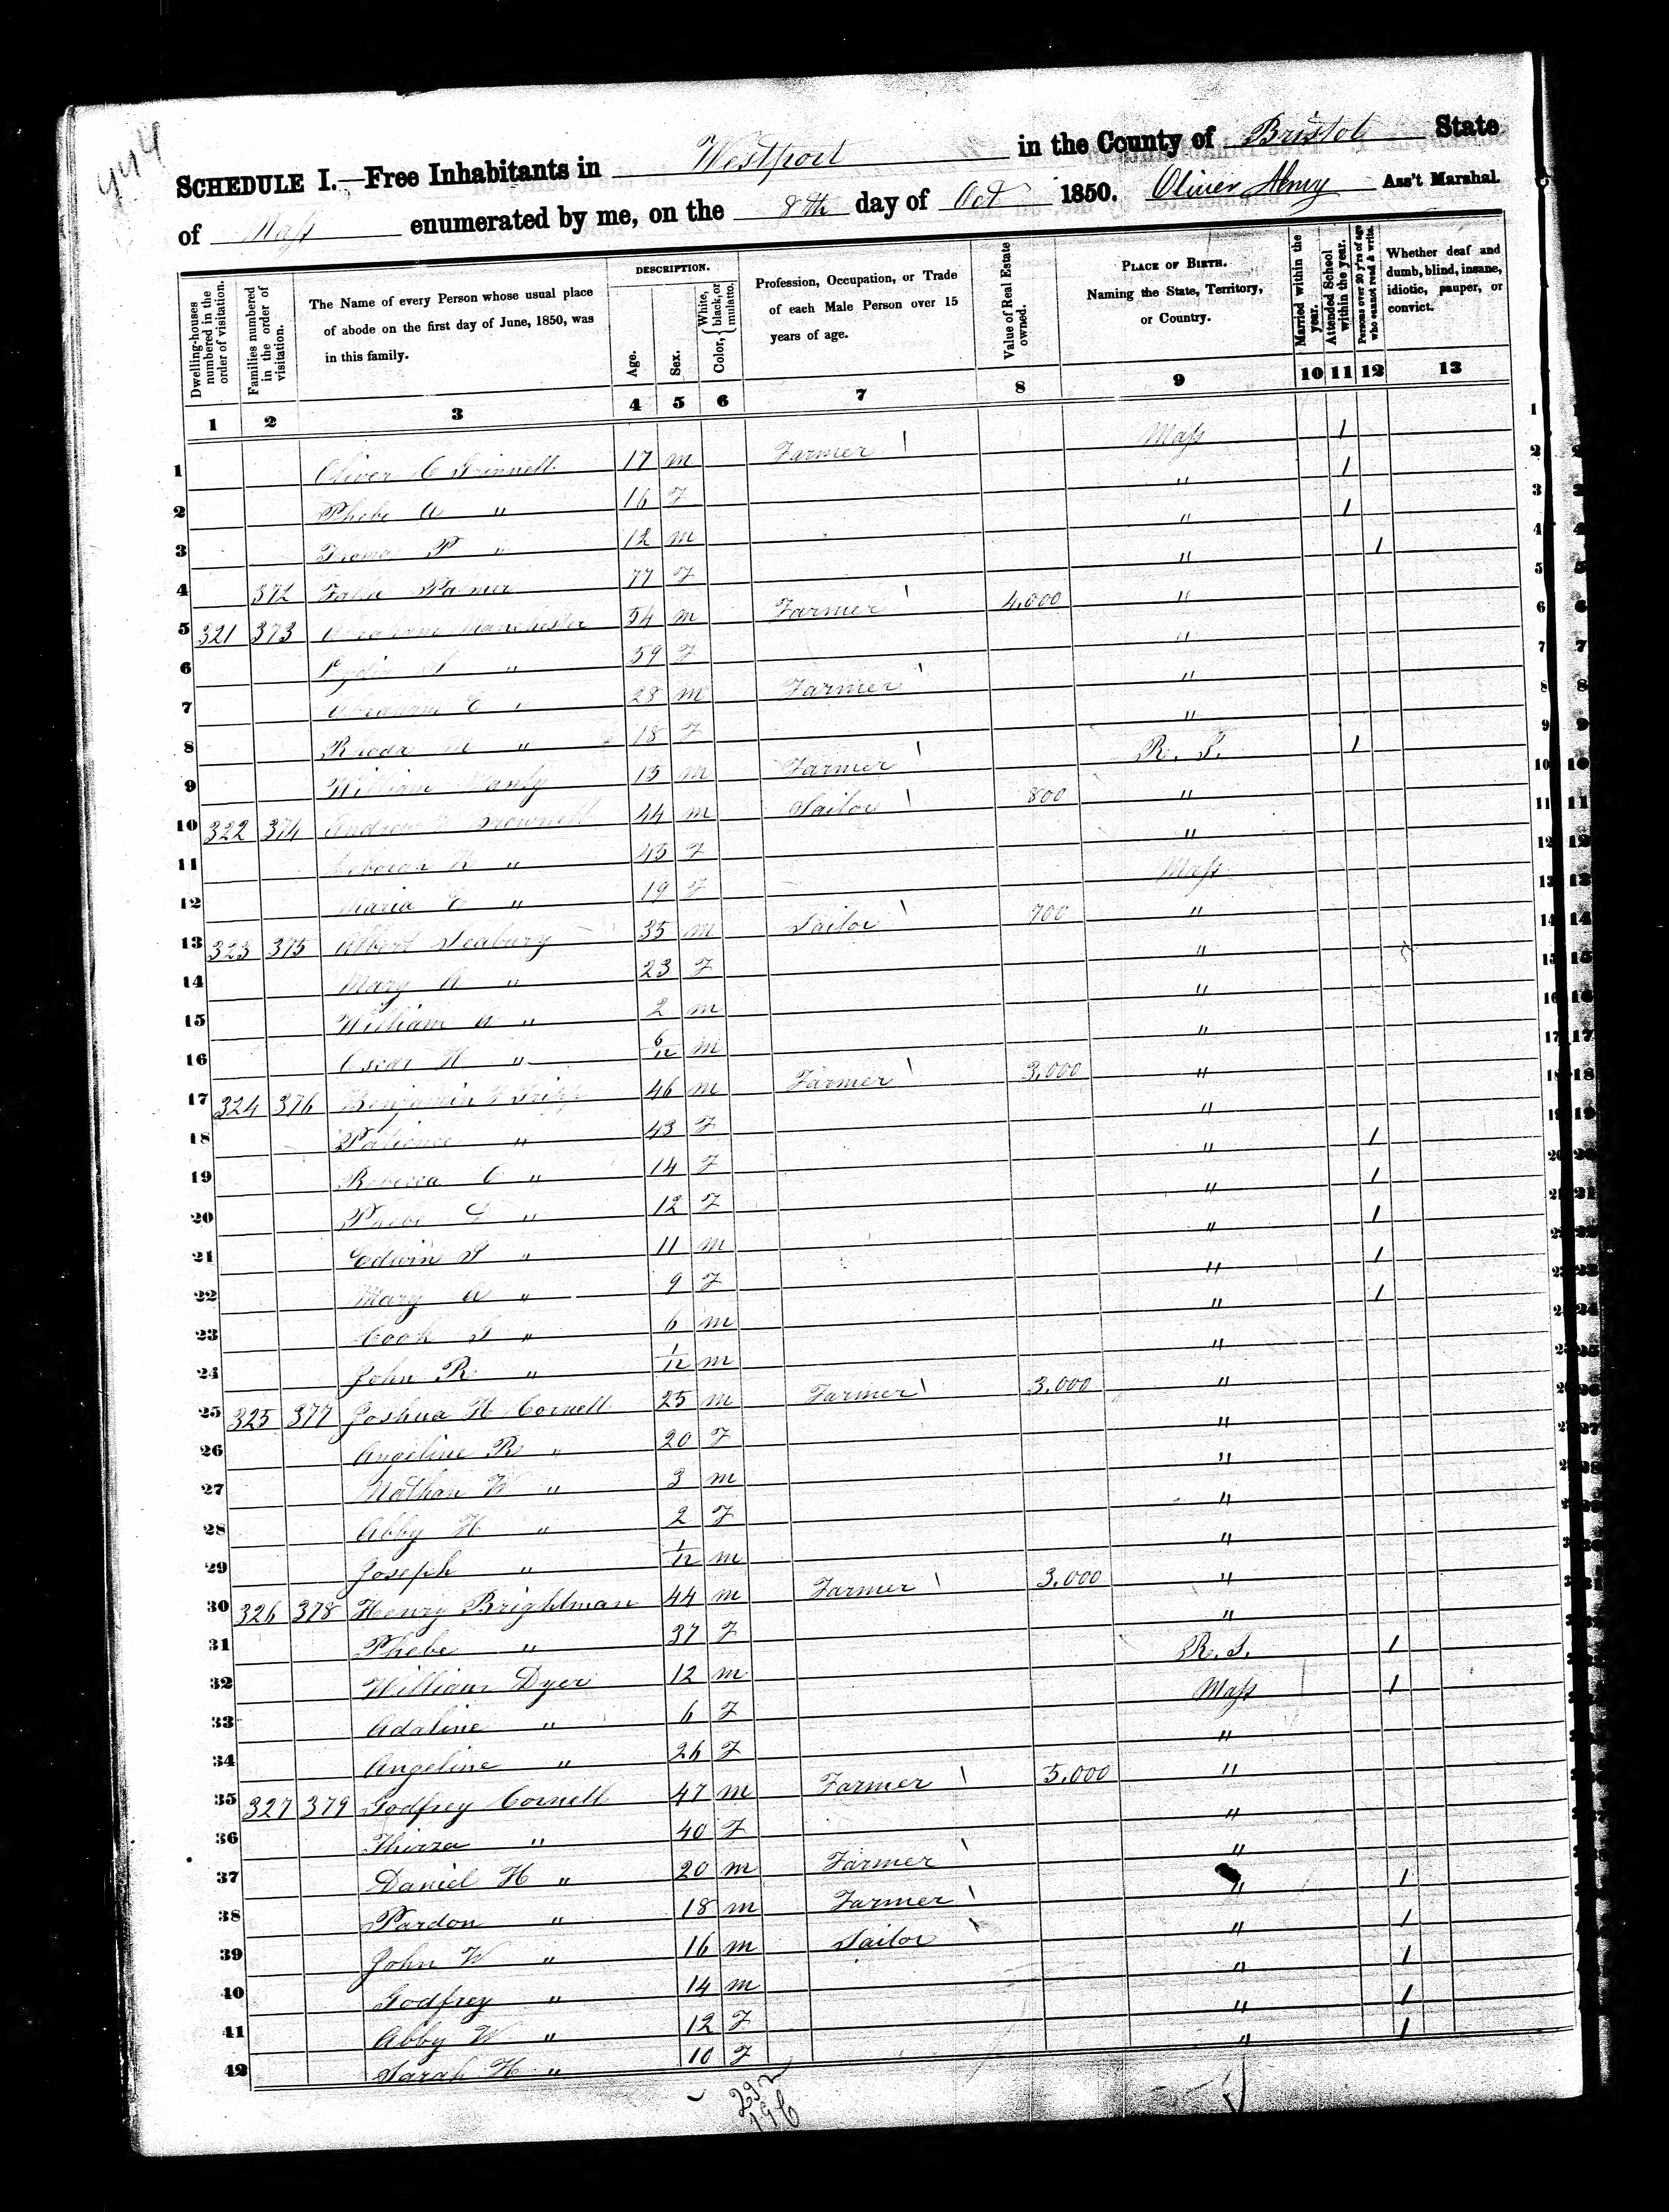 444
SCHEDULE I.—Free Inhabitants in Westport in the County of Bristol State
of Mass enumerated by me, on the 8th day of Oct 1850. Oliver Henry Ass't Marshal.
Dwelling-houses numbered in the order of visitation.
Families numbered in the order of visitation.
The Name of every Person whose usual place of abode on the first day of June, 1850, was in this family.
DESCRIPTION.
Age.
Sex.
Color, { White, black, or mulatto.
Profession, Occupation, or Trade of each Male Person over 15 years of age.
Value of Real Estate owned.
PLACE OF BIRTH. Naming the State, Territory, or Country.
Married within the year.
Attended School within the year.
Persons over 20 y'rs of age who cannot read & write.
Whether deaf and dumb, blind, insane, idiotic, pauper, or convict.
1 2 3 4 5 6 7 8 9 10 11 12 13
1 Oliver C Grinnell 17 m Farmer Mass 1
2 Phebe A " 16 F " 1
3 Thomas P " 12 m " 1
4 372 Palmer 77 F " 1
5 321 373 Abraham Manchester 54 m Farmer 4,000 "
6 Lydia S " 59 F "
7 Abraham E " 28 m Farmer "
8 Rhoda M " 18 F "
9 William Manly 15 m Farmer R. I. 1
10 322 374 Andrew Brownell 44 m Sailor 800 "
11 Deborah K " 43 F "
12 Maria E " 19 F Mass
13 323 375 Albert Seabury 35 m Sailor 700 "
14 Mary A " 23 F "
15 William A " 2 m "
16 Oscar H " 6/12 m "
17 324 376 Benjamin T Tripp 46 m Farmer 3,000 "
18 Patience " 43 F "
19 Rebecca C " 14 F " 1
20 Phebe D " 12 F " 1
21 Edwin S " 11 m " 1
22 Mary A " 9 F " 1
23 Cook T " 6 m " 1
24 John R " 1/12 m "
25 325 377 Joshua H Cornell 25 m Farmer 3,000 "
26 Angeline R " 20 F "
27 Nathan W " 3 m "
28 Abby H " 2 F "
29 Joseph " 1/12 m "
30 326 378 Henry Brightman 44 m Farmer 3,000 "
31 Phebe " 37 F "
32 William Dyer 12 m R. I. 1
33 Adaline " 6 F Mass 1
34 Angeline " 26 F "
35 327 379 Godfrey Cornell 47 m Farmer 5,000 "
36 Thirza " 40 F "
37 Daniel H " 20 m Farmer "
38 Pardon " 18 m Farmer " 1
39 John W " 16 m Sailor " 1
40 Godfrey " 14 m " 1
41 Abby W " 12 F " 1
42 Sarah H " 10 F " 1
232
196